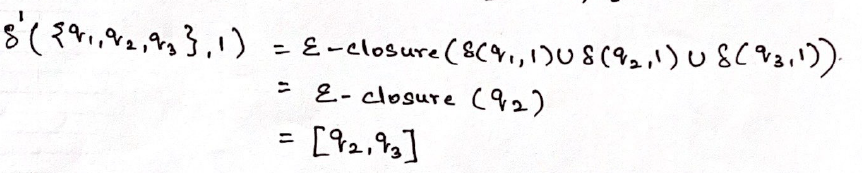 δ'({q₁,q₂,q₃},1) = ε-closure(δ(q₁,1)∪δ(q₂,1)∪δ(q₃,1)).
= ε-closure(q₂)
= [q₂,q₃]